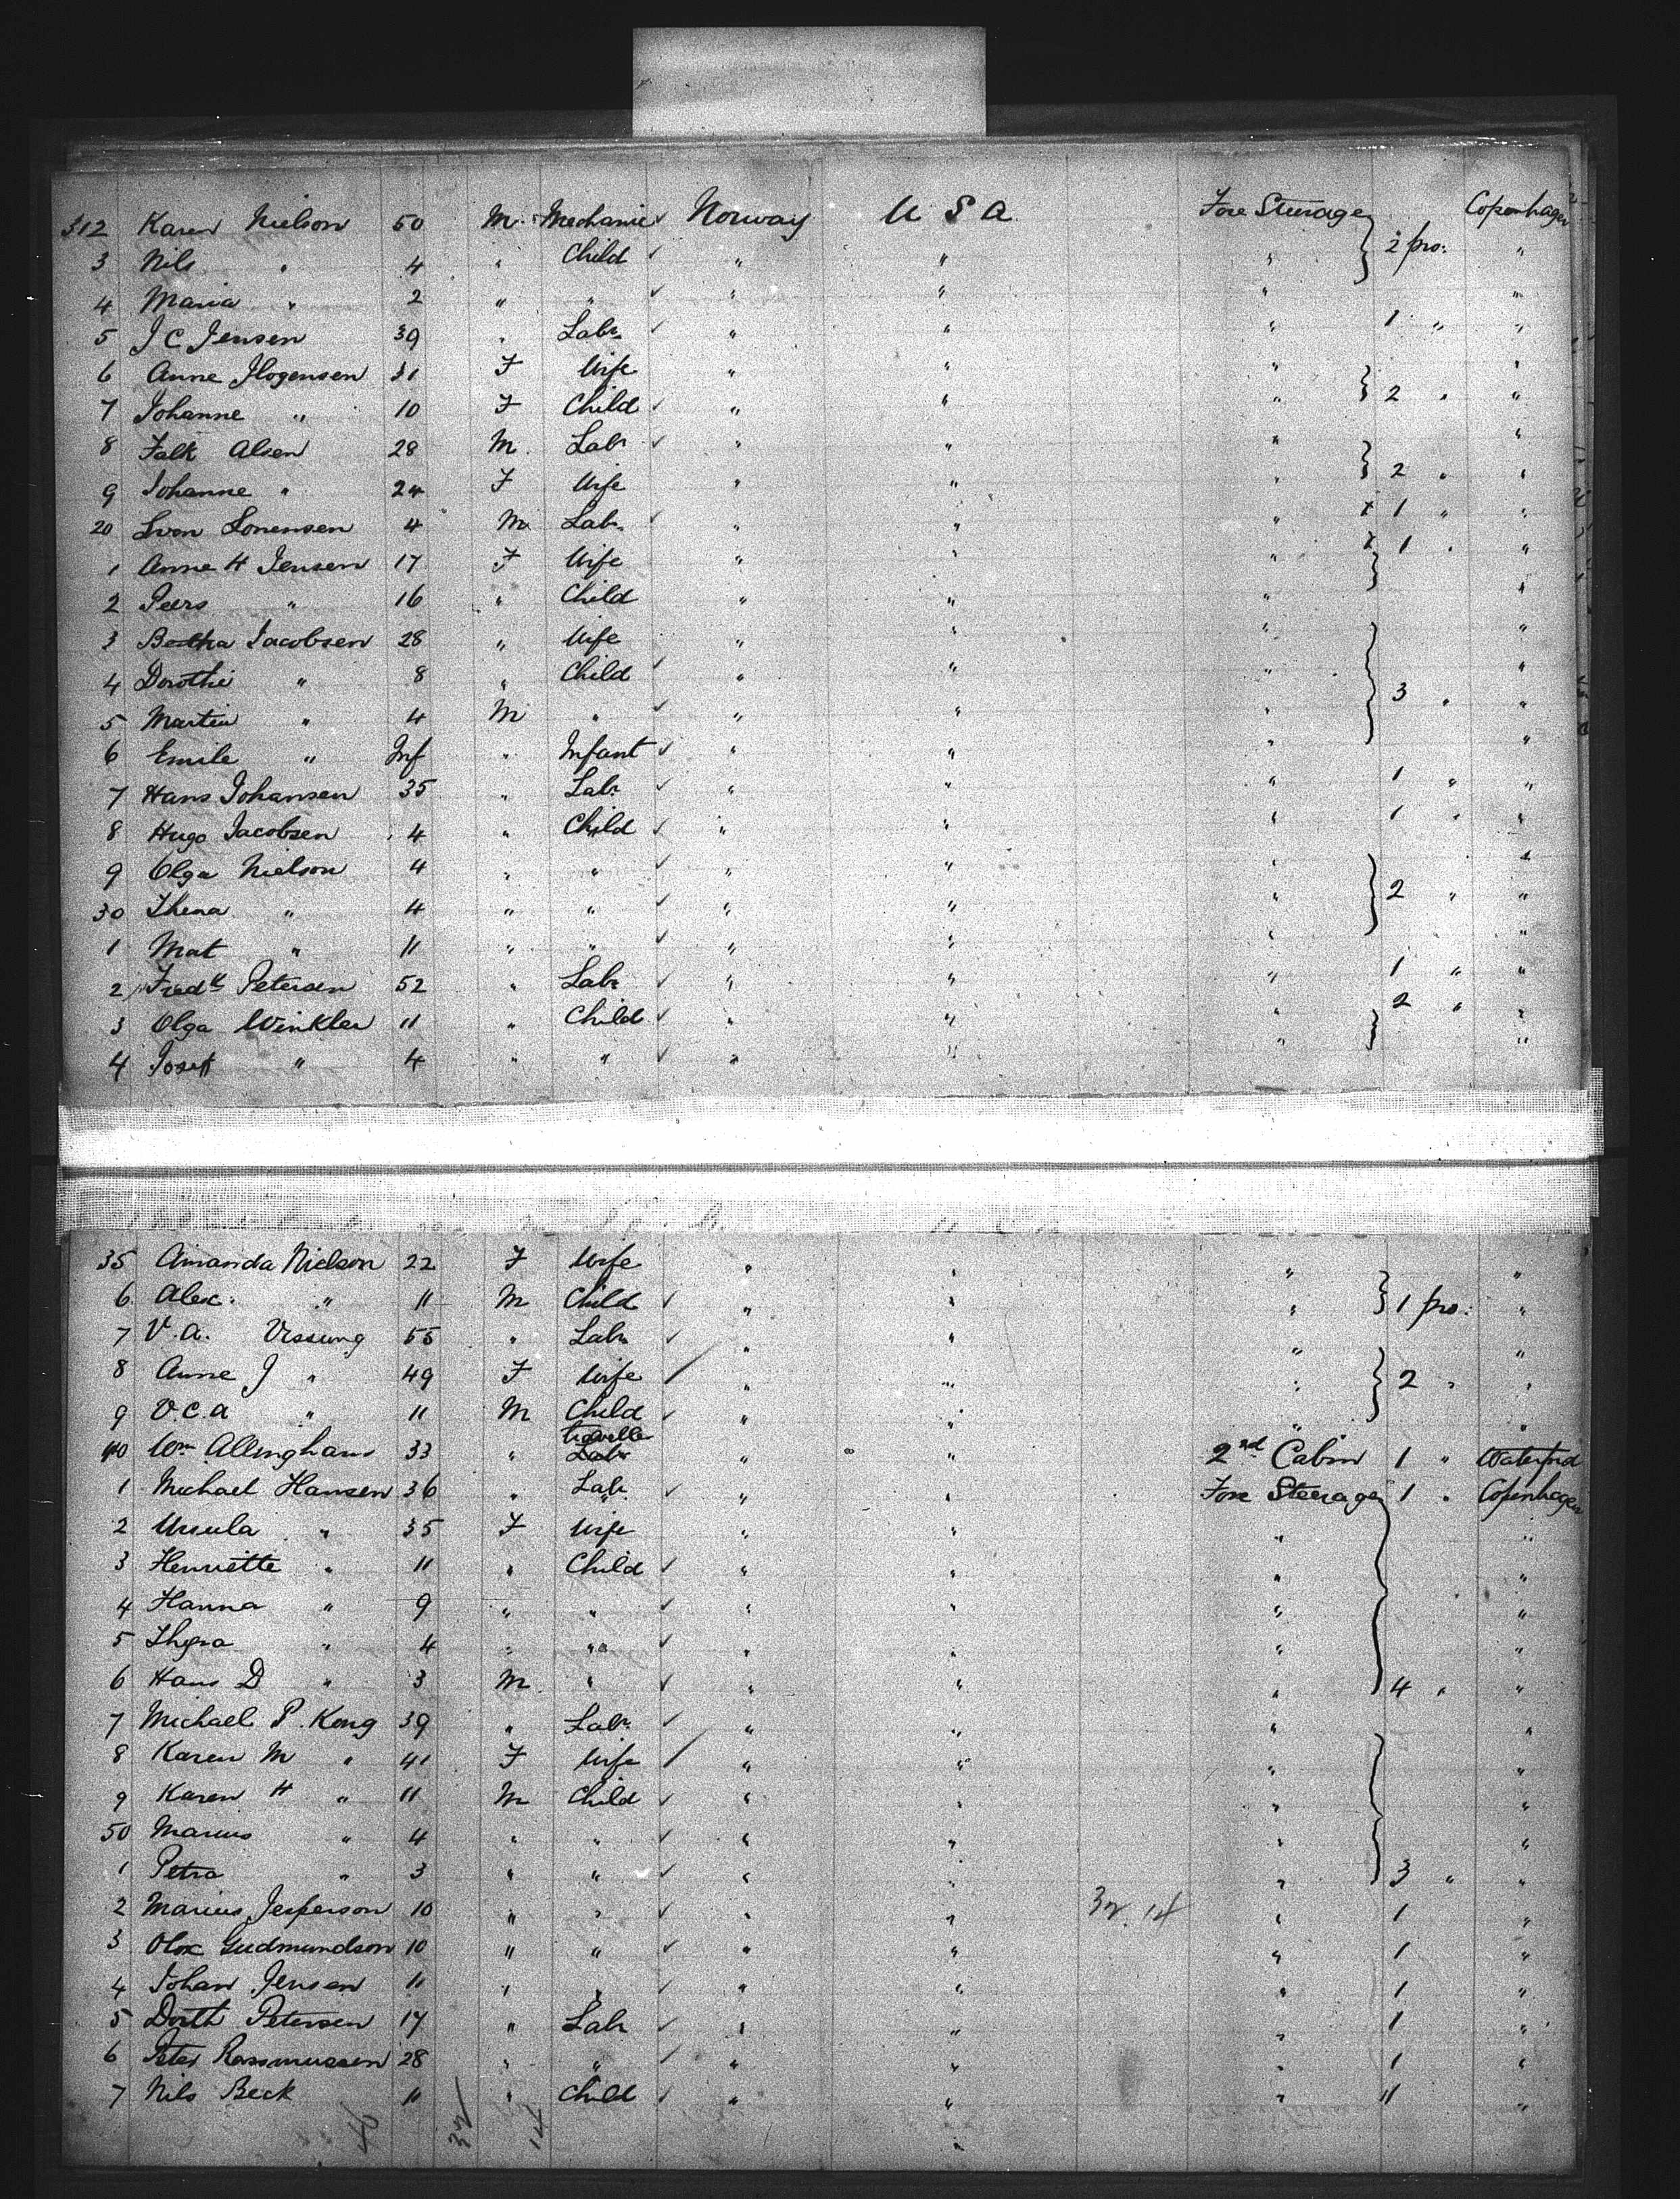 312 Karen Nielson 50 M. Mechanic Norway U S A Fore Steerage 2 pro: Copenhagen
3 Nils " 4 " Child " " " "
4 Maria " 2 " " " " " "
5 J C Jensen 39 " Labr " " " 1 " "
6 Anne Mogensen 31 F Wife " " " "
7 Johanne " 10 F Child " " " 2 " "
8 Falk Alsen 28 M. Labr " " " "
9 Johanne " 24 F Wife " " " 2 " "
20 Sven Sorensen 4 M Labr " " " x 1 " "
1 Anne H Jensen 17 F Wife " " " x 1 " "
2 Peers " 16 " Child " " " "
3 Bertha Jacobsen 28 " Wife " " " "
4 Dorothe " 8 " Child " " " "
5 Martin " 4 M " " " " 3 " "
6 Emile " Inf " Infant " " " "
7 Hans Johansen 35 " Labr " " " 1 " "
8 Hugo Jacobsen 4 " Child " " " 1 " "
9 Olga Nielson 4 " " " " " "
30 Thena " 4 " " " " " 2 " "
1 Mat " 11 " " " " " "
2 Fredk Petersen 52 " Labr " " " 1 " "
3 Olga Winkler 11 " Child " " " 2 " "
4 Josef " 4 " " " " " "
35 Amanda Nielson 22 F Wife " " " "
6 Alex. " 11 M Child " " " 1 pro: "
7 V. A. Vissung 55 " Labr " " " "
8 Anne J " 49 F Wife " " " 2 " "
9 V. C. A " 11 M Child " " " "
40 Wm Allinghans 33 " Labr travelle " " 2nd Cabin 1 " Waterford
1 Michael Hansen 36 " Labr " " Fore Steerage 1 " Copenhagen
2 Ursula " 35 F Wife " " " "
3 Henriette " 11 " Child " " " "
4 Hanna " 9 " " " " " "
5 Thyra " 4 " " " " " "
6 Hans D " 3 M " " " " 4 " "
7 Michael P. Kong 39 " Labr " " " "
8 Karen M " 41 F Wife " " " "
9 Karen H " 11 M Child " " " "
50 Marius " 4 " " " " " "
1 Petra " 3 " " " " " 3 " "
2 Marius Jesperson 10 " " " " 32. 14 " 1 "
3 Olox Gudmundson 10 " " " " " 1 "
4 Johan Jensen 11 " " " " " 1 "
5 Dorth Petersen 17 " Labr " " " 1 "
6 Peter Rasmussen 28 " " " " " 1 "
7 Nils Beck 11 " Child " " " 11 "
46 32 14